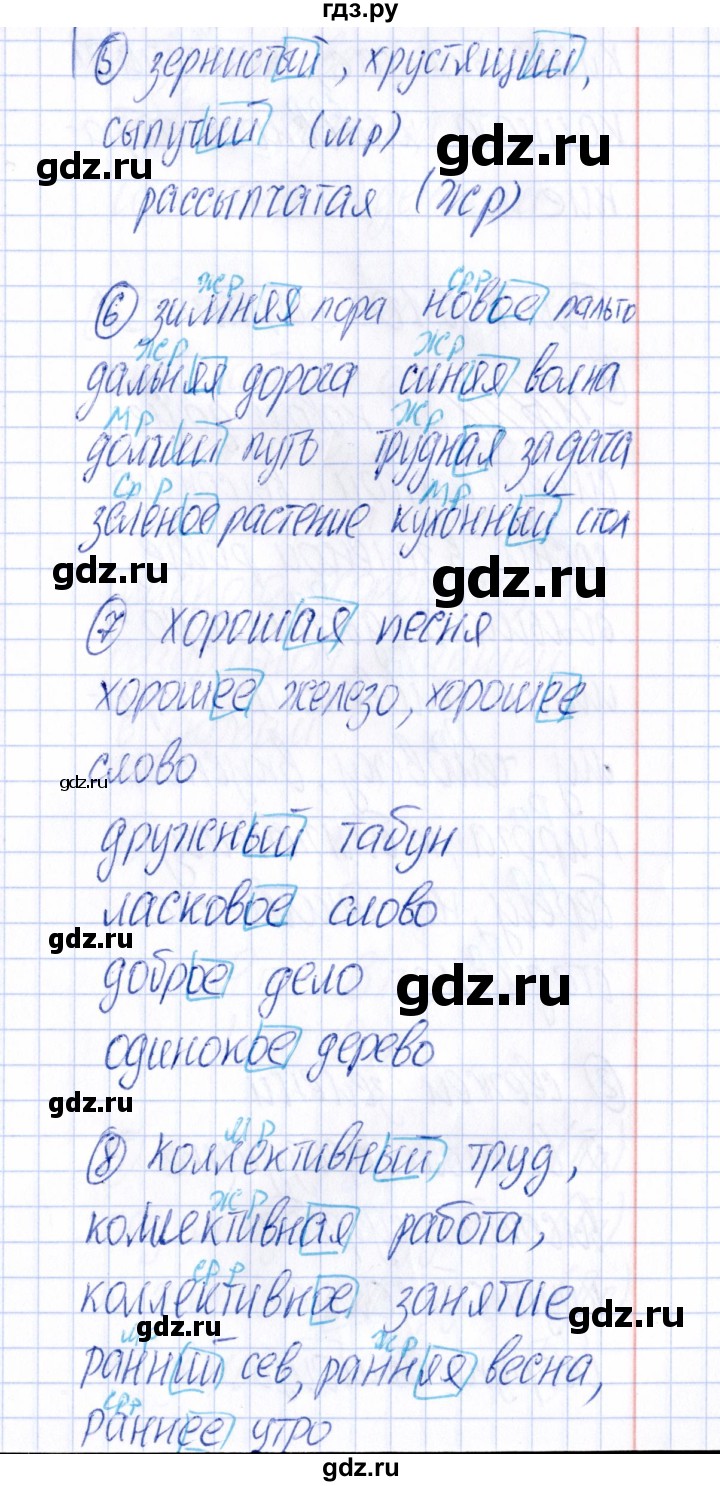 гдз.ру
5 зернистый, хрустящий,
сыпучий (мр)
gdz.ru
gdz.ru
рассыпчатая (жр)
жр срр
6 зимняя пора новое пальто
жр жр
дальняя дорога синяя волна
мр жр
долгий путь трудная задача
ср р мр
зеленое растение кухонный стол
gdz.ru
gdz.ru
7 хорошая песня
хорошее железо, хорошее
слово
gdz.ru
дружный табун
ласковое слово
gdz.ru
доброе дело
gdz.ru
одинокое дерево
gdz.ru
мр
8 коллективный труд,
жр
коллективная работа,
ср р
коллективное занятие
gdz.ru
gdz.ru
мр жр
ранний сев, ранняя весна,
срр
раннее утро
gdz.ru